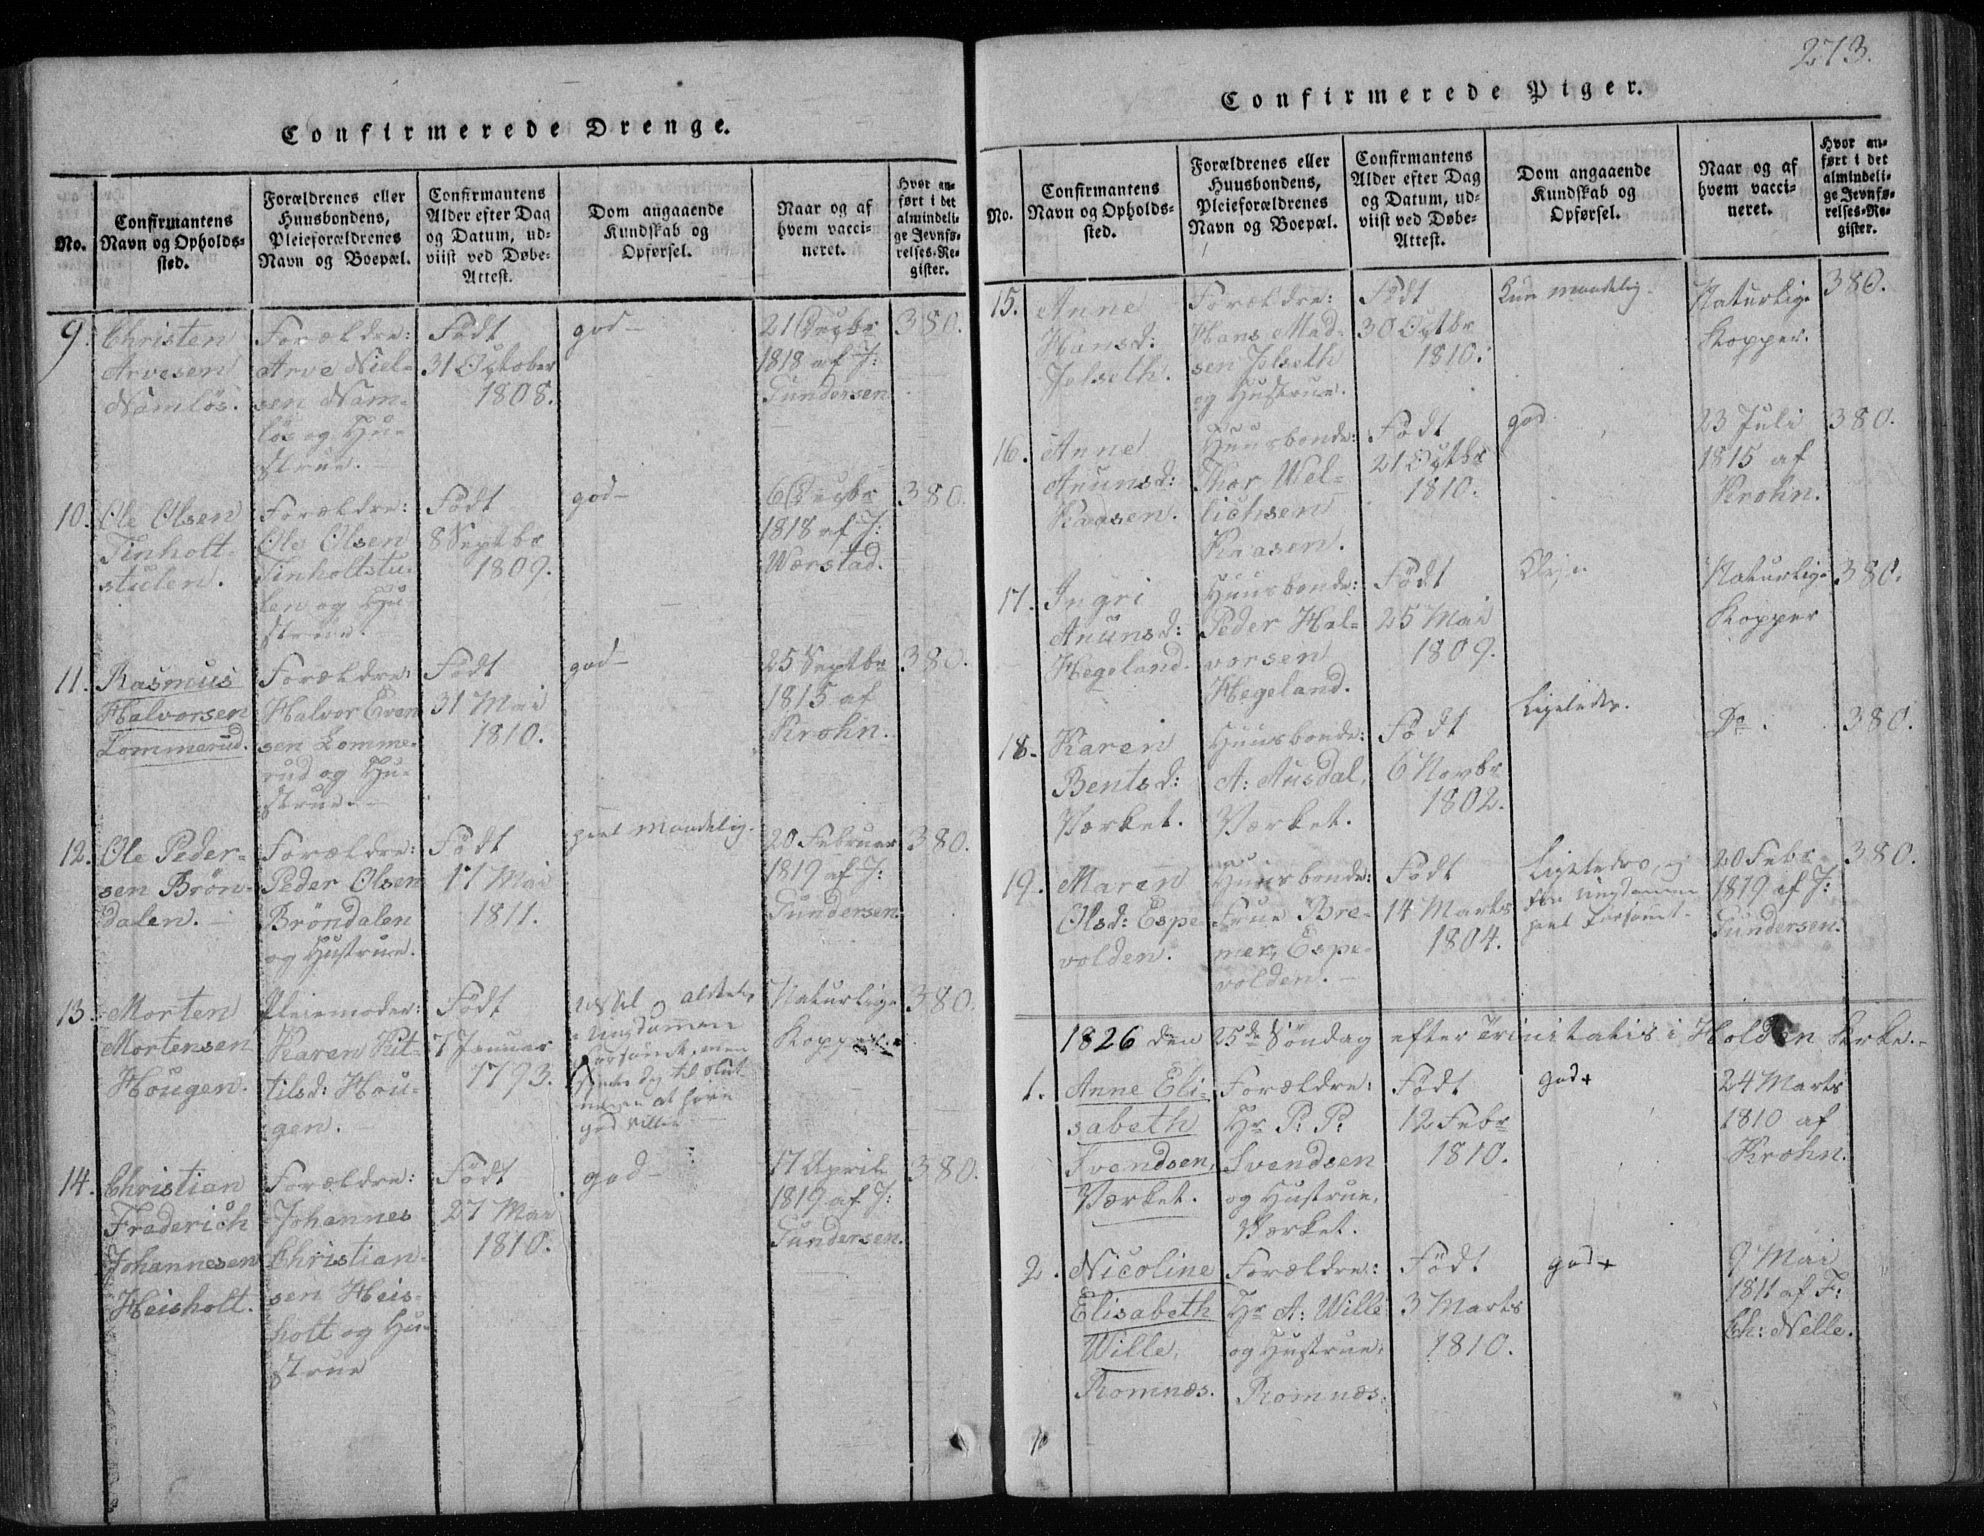 Confirmerede Drenge.
No.
Confirmantens
Navn og Opholds-
sted.
Forældrenes eller
Huusbondens,
Pleieforældrenes
Navn og Boepæl.
Confirmantens
Alder efter Dag
og Datum, ud-
viist ved Døbe-
Attest.
Dom angaaende
Kundskab og
Opførsel.
Naar og af
hvem vacci-
neret.
Hvor an-
ført i det
almindeli-
ge Jevnfø-
relses-Re-
gister.
9.
Christen
Arvesen
Namløs.
Forældre:
Arve Niel-
sen Nam-
løs og Hu-
strue.
Født
31 October
1808.
god
21 Decbr
1818 af J:
Gundersen
380.
10.
Ole Olsen
Tinholt-
stulen.
Forældre:
Ole Olsen
Tinholtstu-
len og Hu-
strue.
Født
8 Septbr
1809.
god
6 Decbr
1818 af J:
Wærstad.
380.
11.
Rasmus
Halvorsen
Lommerud.
Forældre:
Halvor Even
sen Lomme-
rud og Hu-
strue.
Født
31 Mai
1810.
god
25 Septbr
1815 af
Krohn.
380.
12.
Ole Peder-
sen Brön-
dalen.
Forældre:
Peder Olsen
Bröndalen
og Hustrue.
Født
17 Mai
1811.
maadelig.
20 Februar
1819 af J:
Gundersen.
380.
13.
Morten
Mortensen
Hougen.
Pleiemoder:
Karen Kit-
tilsd: Hou-
gen.
Født
7 Januar
1793.
ussel og
Ungdommen
forsømt, men
til slut-
god villie
Naturlige
Kopper.
380.
14.
Christian
Fraderich
Johannesen
Heisholt.
Forældre:
Johannes
Christian-
sen Heis-
holt og Hu-
strue
Født
27 Mai
1810.
god
17 April
1819 af J:
Gundersen.
380.
273.
Confirmerede Piger.
No.
Confirmantens
Navn og Opholds-
sted.
Forældrenes eller
Huusbondens,
Pleieforældrenes
Navn og Boepæl.
Confirmantens
Alder efter Dag
og Datum, ud-
viist ved Døbe-
Attest.
Dom angaaende
Kundskab og
Opførsel.
Naar og af
hvem vacci-
neret.
Hvor an-
ført i det
almindeli-
ge Jevnfø-
relses-Re-
gister.
15.
Anne
Hansd:
Jelseth.
Forældre:
Hans Mad-
sen Jelseth
og Hustrue.
Født
30 Octbr
1810.
kun maadelig.
Naturlige
Kopper.
380.
16.
Anne
Anunsd:
Kaasen.
Huusbonde:
Thor Wel-
lichsen
Kaasen.
Født
21 Octbr
1810.
god
23 Juli
1815 af
Krohn.
380.
17.
Ingri
Anunsd:
Hegeland.
Huusbonde:
Peder Hal-
vorsen
Hegeland.
Født
25 Mai
1809.
Naturlige
Kopper
380.
18.
Karen
Bentsd:
Værket.
Huusbonde:
A: Ausdal,
Værket.
Født
6 Novbr
1802.
Ligeledes.
Do.
380.
19.
Maren
Olsd: Espe-
volden.
Huusbonde:
Frue Bre-
mer, Espe-
volden.
Født
14 Marts
1804.
Ligeledes, og
Ungdommen
forsømt.
20 Febr
1819 af J:
Gundersen.
380.
1826 den 25de Söndag efter Trinitatis i Holden Kirke.
1.
Anne Eli-
sabeth
Svendsen,
Værket.
Forældre:
Hr P: P:
Svendsen
og Hustrue,
Værket.
Født
12 Febr
1810.
god+
24 Marts
1810 af
Krohn.
2.
Nicoline
Elisabeth
Wille,
Romnæs.
Forældre:
Hr A: Wille
og Hustrue,
Romnæs.
Født
3 Marts
1810.
god+
9 Mai
1811 af F:
Ch: Nelle.